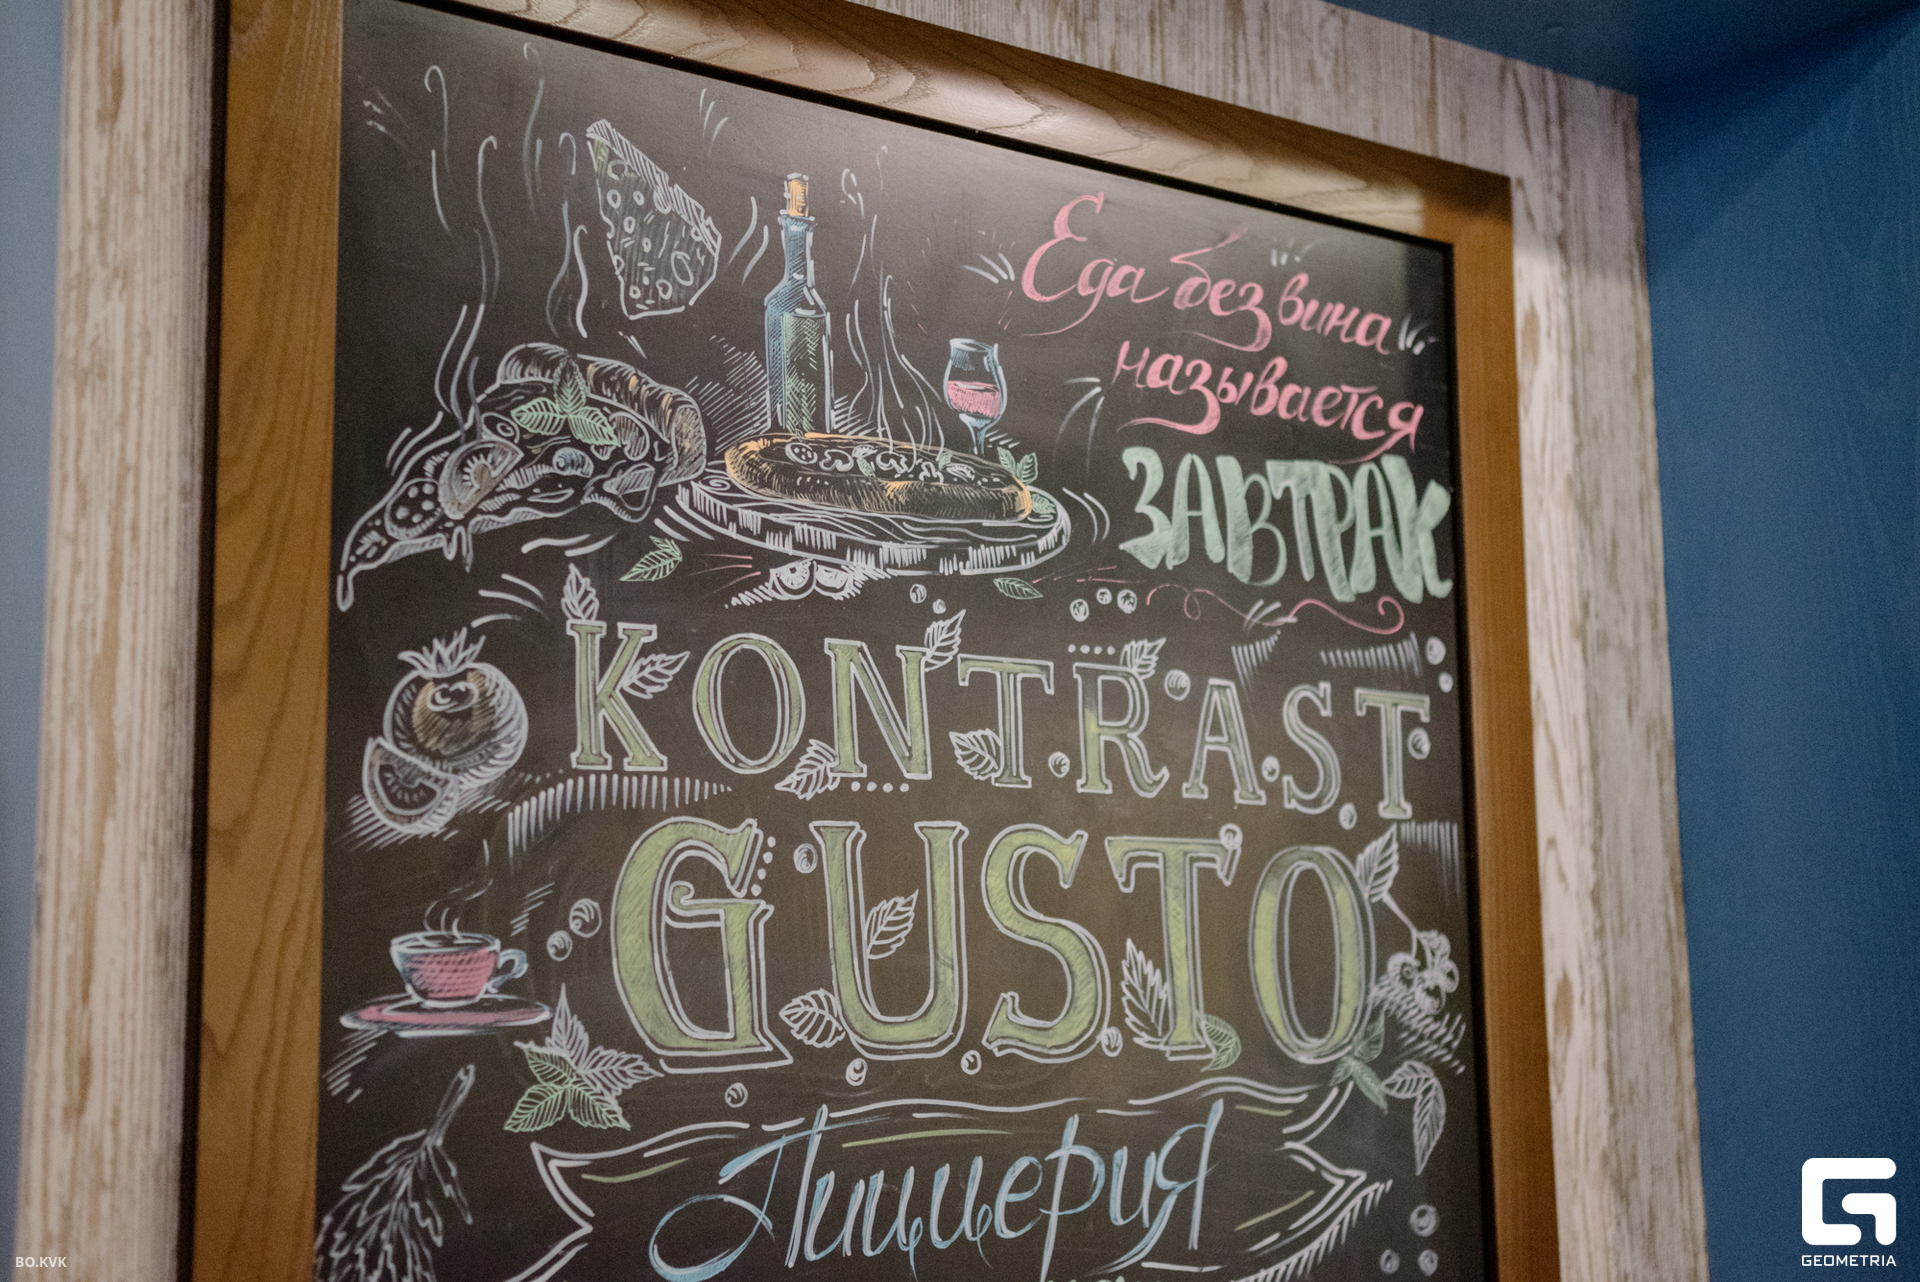 Еда без вина
называется
ЗАВТРАК
KONTRAST
GUSTO
Пиццерия
BO.KVK
GEOMETRIA